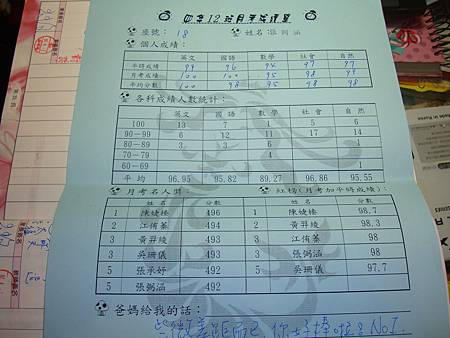 四年12班月考成績單
座號: 18 姓名:張
個人成績:
英文 國語 數學 社會 自然
平時成績 99 96 94 97 97
月考成績 100 100 95 98 99
平均分數 100 98 95 98 98
各科成績人數統計:
英文 國語 數學 社會 自然
100 13 7 5 6
90-99 6 12 11 17 14
80-89 3 3 6 1
70-79 4
60-69 1
平均 96.95 95.82 89.27 96.86 95.55
月考名人榜: 紅榜(月考加平時成績):
姓名 分數 姓名 分數
1 陳婕榛 496 1 陳婕榛 98.7
2 江侑蓁 494 2 黃羿綾 98.3
3 黃羿綾 493 3 江侑蓁 98
3 吳珊儀 493 3 張弼涵 98
5 張承妤 492 5 吳珊儀 97.7
5 張弼涵 492
爸媽給我的話:
些微差距而已,你好棒啦是 No1.